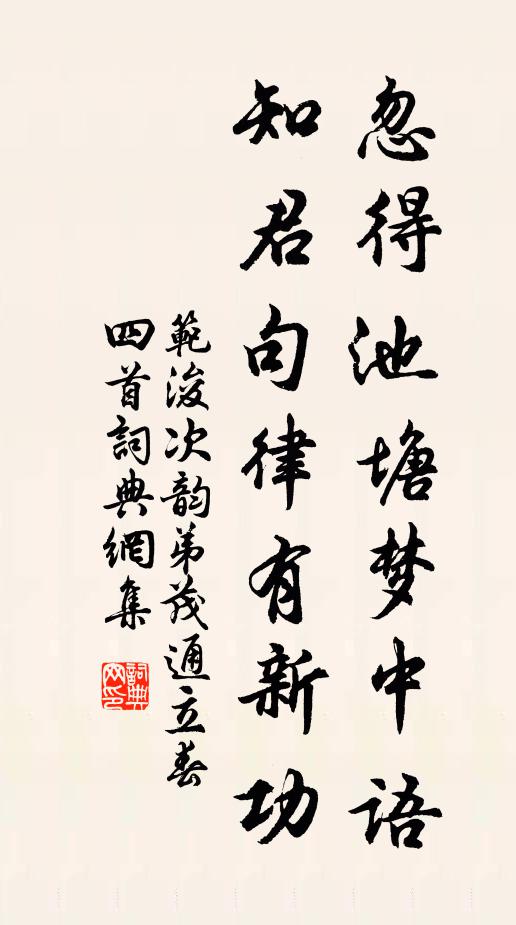 忽得池塘梦中语
知君句律有新功
範浚次韵弟茂通立春
四首詞典網集